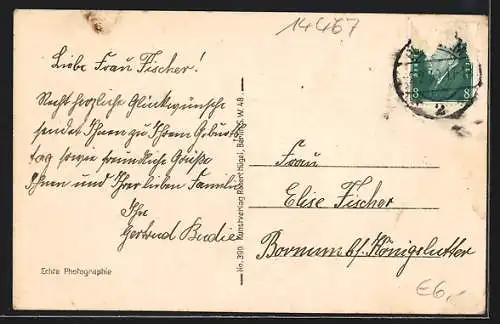 14467
Liebe Frau Fischer!
Recht herzliche Glückwünsche
sendet Ihnen zu Ihrem Geburts
tag sowie freundliche Grüße
Ihnen und Ihrer lieben Familie
Ihre
Gertrud
Echte Photographie
No. 390 Kunstverlag Berlin W. 48.
8 8
2
Frau
Elise Fischer
Bornum b/ Königslutter
€6,-